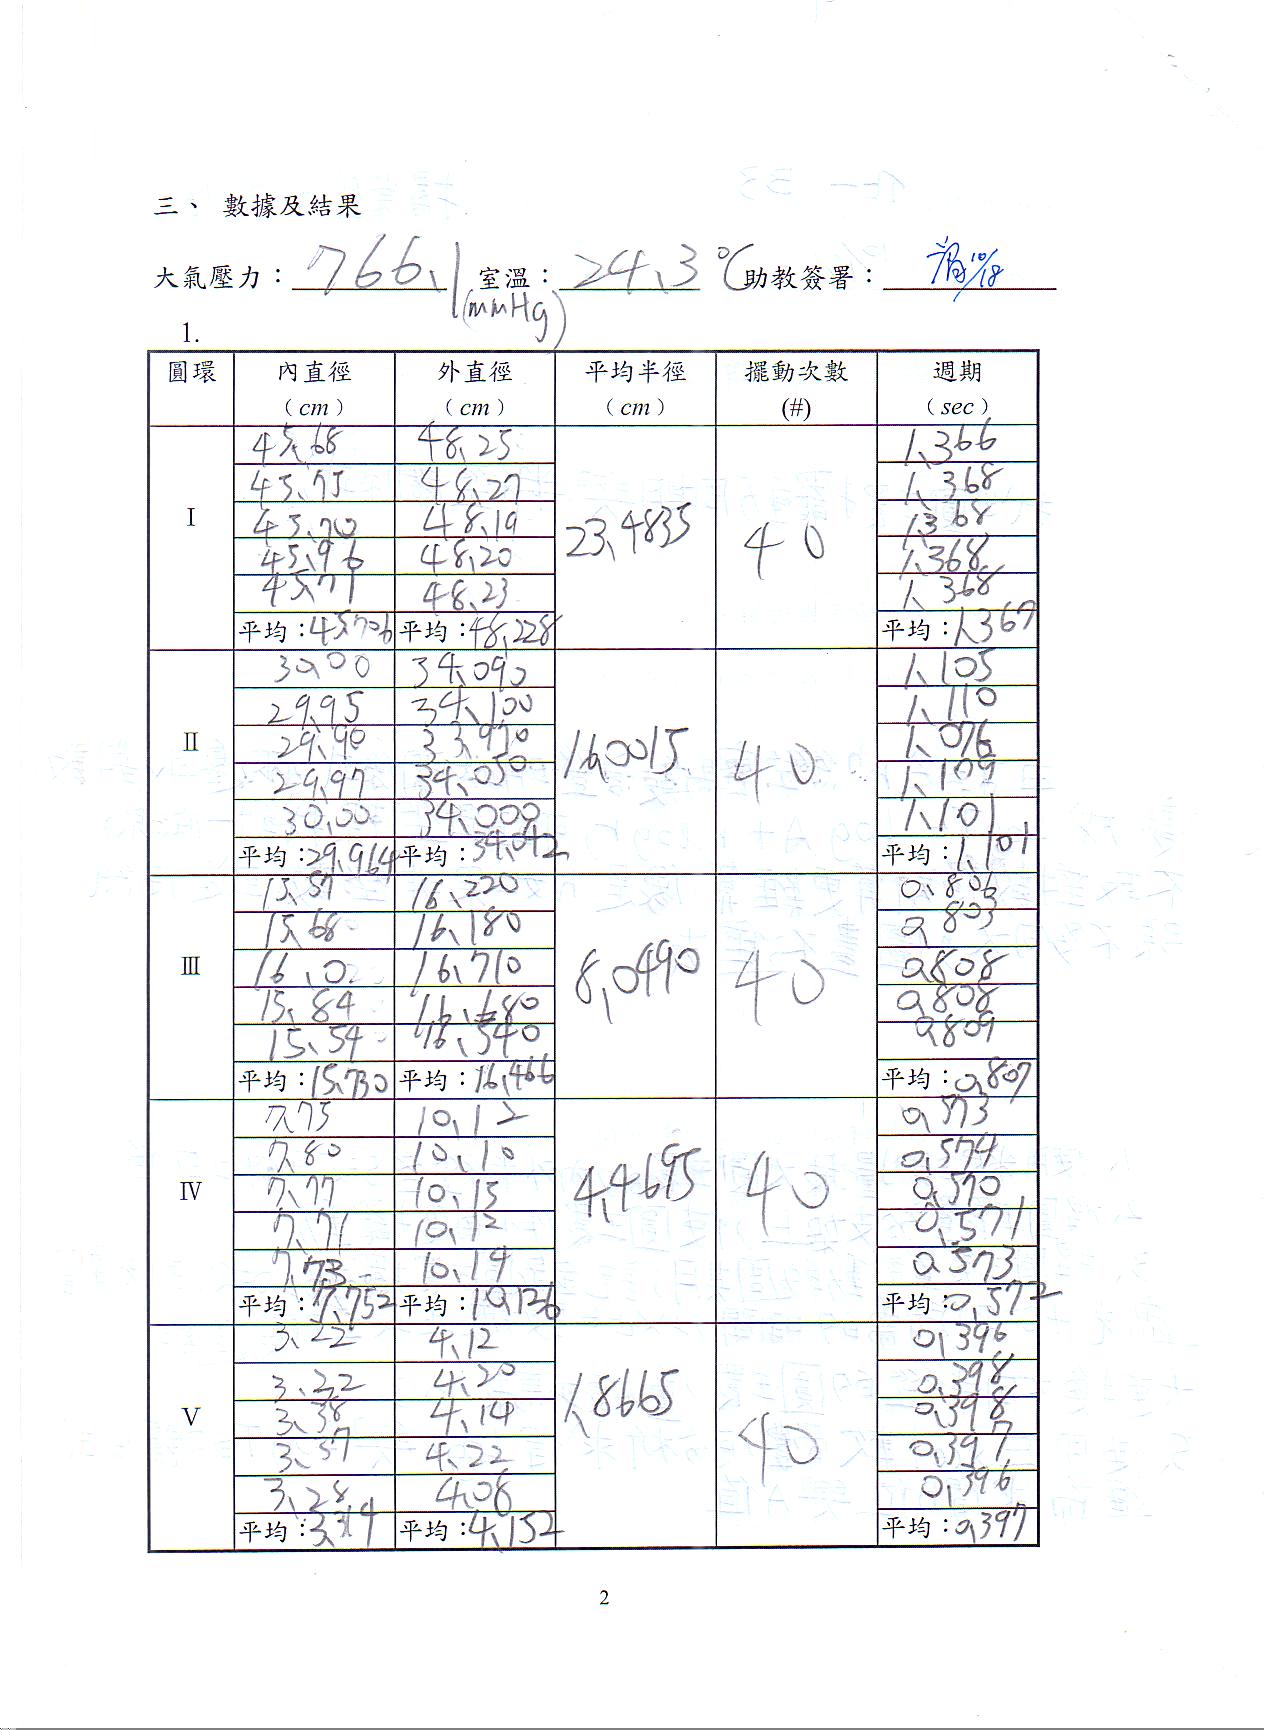 三、 數據及結果
大氣壓力: 766.1 (mmHg) 室溫: 24.3 ℃ 助教簽署: 10/18
1.
圓環 內直徑 (cm) 外直徑 (cm) 平均半徑 (cm) 擺動次數 (#) 週期 (sec)
I 23.4835 40
45.68 48.25 1.366
45.75 48.27 1.368
45.70 48.19 1.368
45.96 48.20 1.368
45.71 48.23 1.368
平均:45.706 平均:48.228 平均:1.367
II 16.0015 40
30.00 34.090 1.105
29.95 34.100 1.110
29.90 33.970 1.076
29.97 34.050 1.109
30.00 34.000 1.101
平均:29.964 平均:34.042 平均:1.101
III 8.0490 40
15.57 16.220 0.806
15.68 16.180 0.803
16.02 16.710 0.808
15.84 16.680 0.808
15.54 16.540 0.809
平均:15.730 平均:16.466 平均:0.807
IV 4.4695 40
7.75 10.12 0.573
7.80 10.10 0.574
7.77 10.15 0.570
7.71 10.12 0.571
7.73 10.14 0.573
平均:7.752 平均:10.126 平均:0.572
V 1.8665 40
3.22 4.12 0.396
3.22 4.20 0.398
3.38 4.14 0.398
3.37 4.22 0.397
3.28 4.08 0.396
平均:3.314 平均:4.152 平均:0.397
2